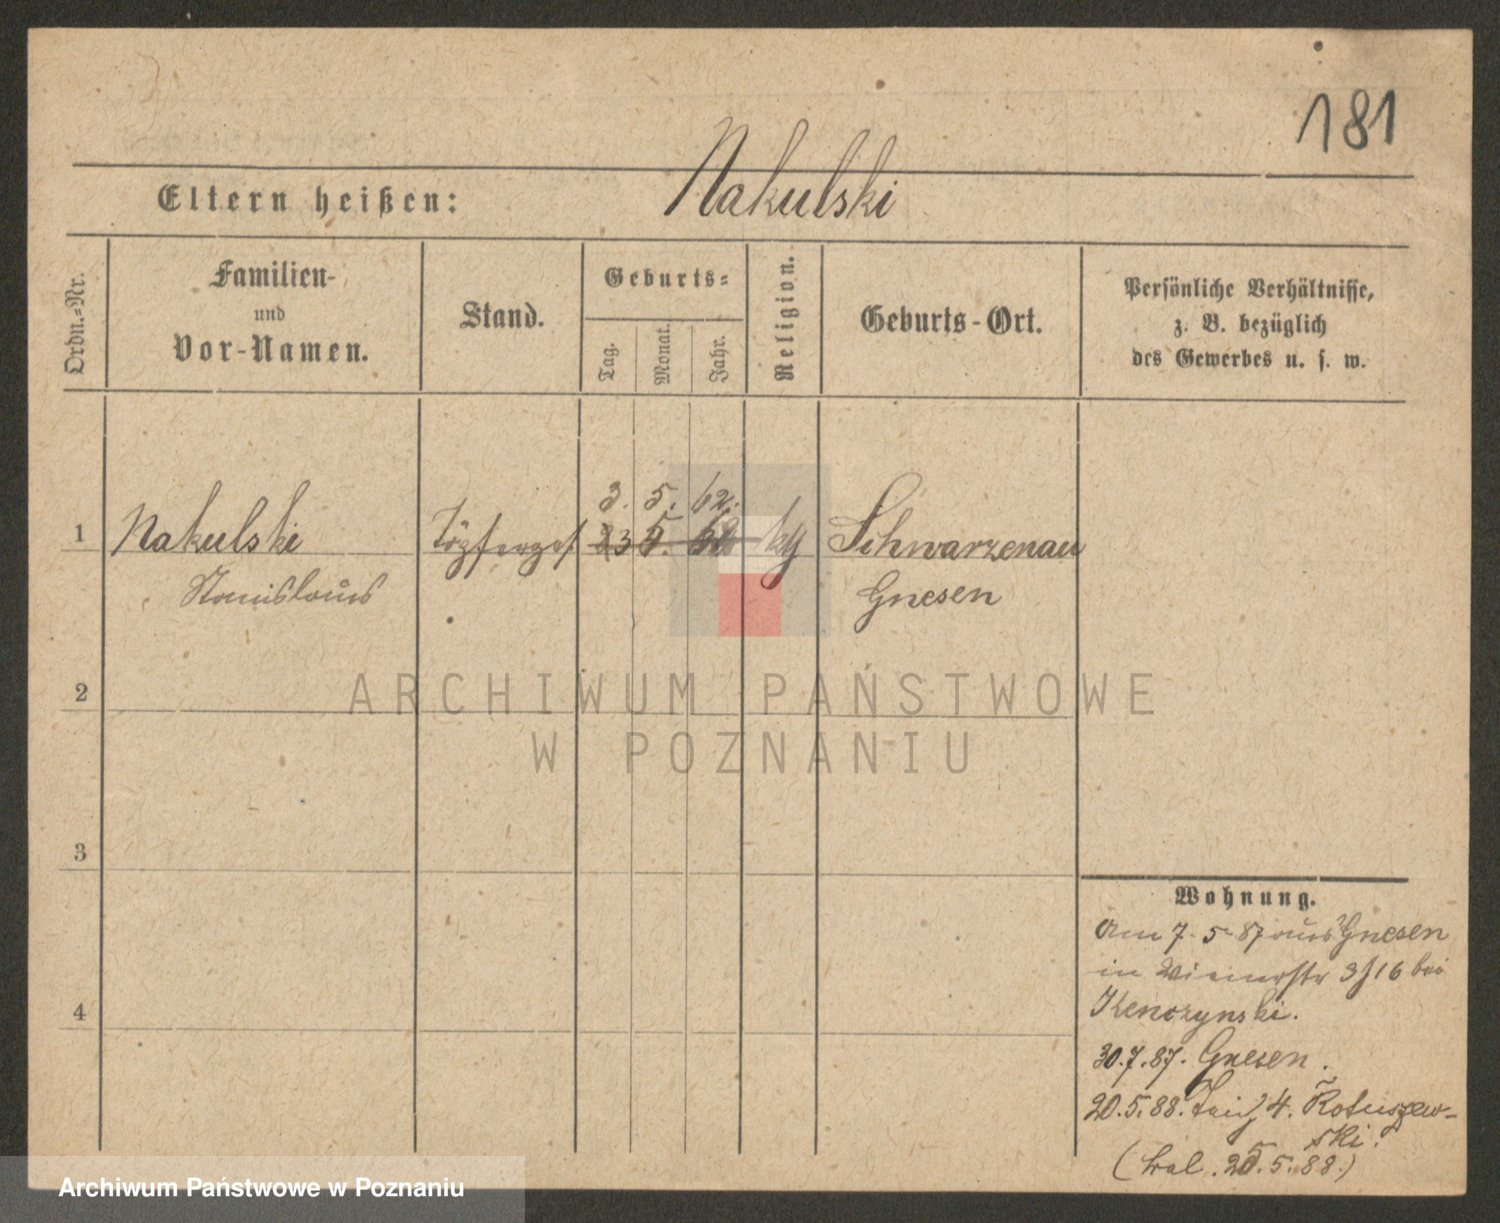 181
Eltern heißen: Nakulski
Ordn.-Nr.
Familien-
und
Vor-Namen.
Stand.
Geburts-
Tag.
Monat.
Jahr.
Religion.
Geburts-Ort.
Persönliche Verhältnisse,
z. B. bezüglich
des Gewerbes u. s. w.
3. 5. 62.
1 Nakulski Töpferges. 23 5. kg Schwarzenau
Stanislaus Gnesen
2
3
4
Wohnung.
Am 7. 5. 87 aus Gnesen
in Wienerstr 3/16 bei
30.7.87. Gnesen.
20.5.88. Teich 4. Rotuszew-
ski.
5.88.)
ARCHIWUM PAŃSTWOWE
W POZNANIU
Archiwum Państwowe w Poznaniu